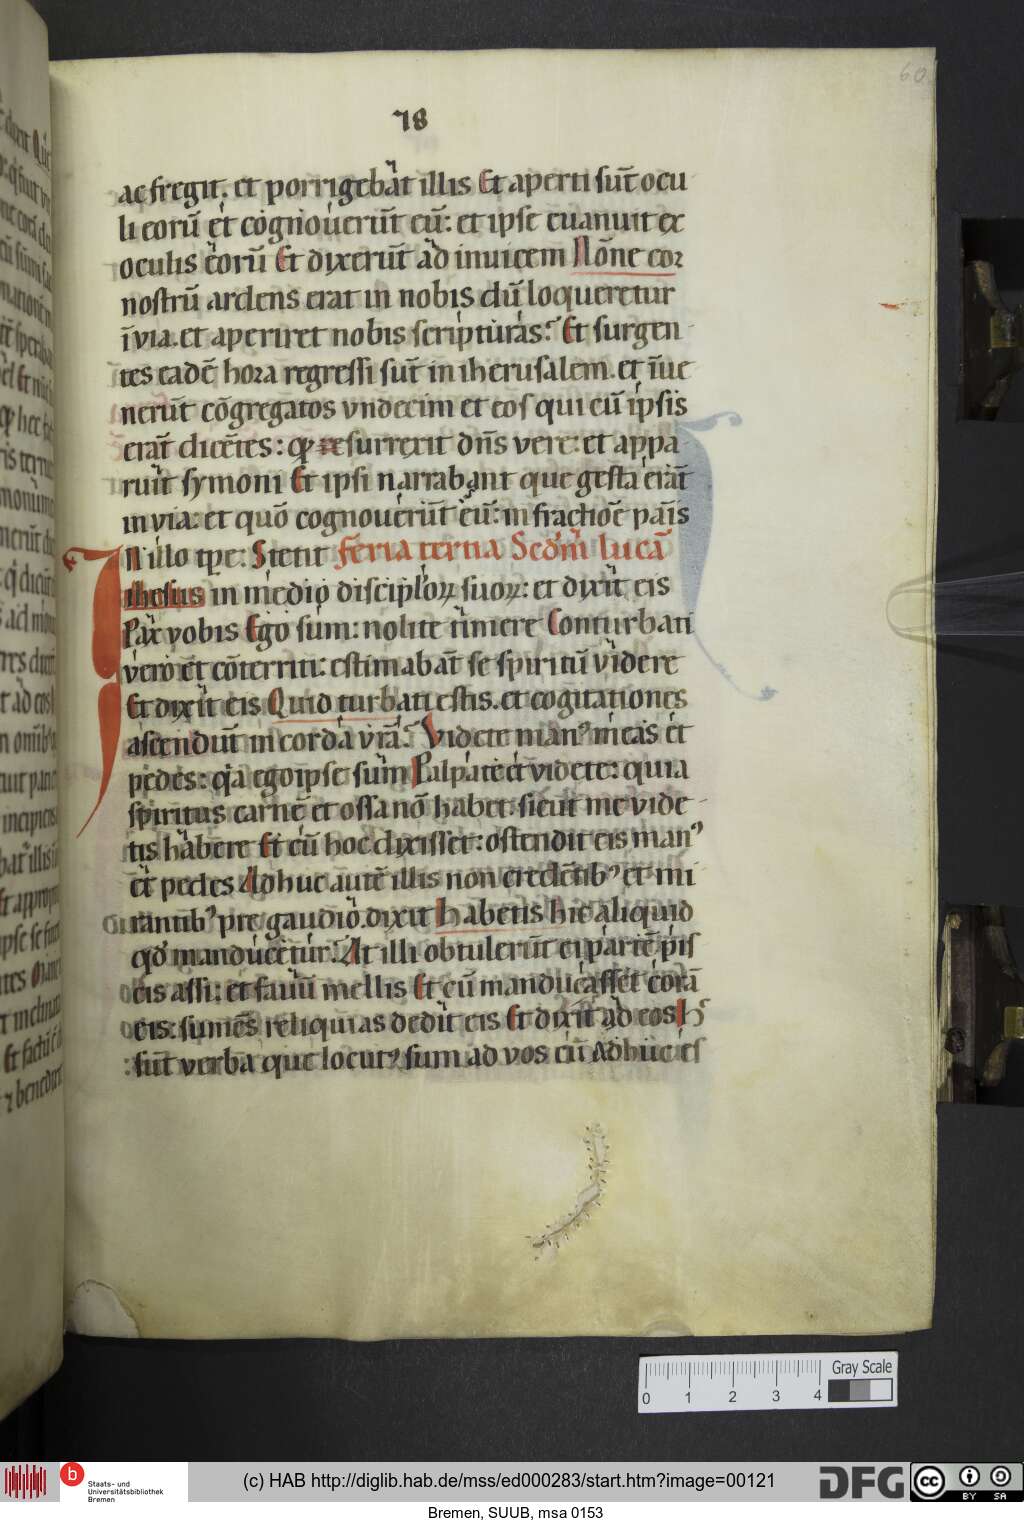 60
78
ac fregit. et porrigebāt illis Et aperti sūt ocu
li corū et cognouerūt eū: et ipse euanuit ex
oculis eorū Et dixerūt ad inuicem Nōne cor
nostrū ardens erat in nobis dū loqueretur
ī via. et aperiret nobis scripturas? Et surgen
tes eadē hora regressi sūt in iherusalem. et īue
nerūt cōgregatos vndecim et eos qui cū ipsis
erāt dicētes: qꝫ resurrexit dn̄s vere: et appa
ruit symoni Et ipsi narrabant que gesta erāt
in via: et quō cognouerūt eū: in fractiōe panis
N illo tp̄e: Stetit feria tertia Scd̄m lucā
ihesus in medio discipl'oꝝ suoꝝ: et dixit eis
Pax vobis Ego sum: nolite timere Conturbati
vero et cōterriti: estimabāt se spiritū videre
Et dixit eis Quid turbati estis. et cogitationes
ascendūt in corda vr̄a? Videte manꝰ meas et
pedes: qia ego ipse sum Palpate et videte: quia
spiritus carnē et ossa nō habet: sicut me vide
tis habere Et cū hoc dixisset: ostendit eis manꝰ
et pedes Adhuc autē illis non credētibꝰ et mi
rantibꝰ pre gaudio. dixit Habetis hic aliquid
qd' manducetur? At illi obtulerūt ei partē pis
cis assi: et fauū mellis Et cū manducasset corā
eis: sumēs reliquias dedit eis Et dixit ad eos H
sūt verba que locutꝰ sum ad vos cū Adhuc es
Gray Scale
0 1 2 3 4
b Staats- und
Universitätsbibliothek
Bremen
(c) HAB http://diglib.hab.de/mss/ed000283/start.htm?image=00121
DFG
cc BY SA
Bremen, SUUB, msa 0153